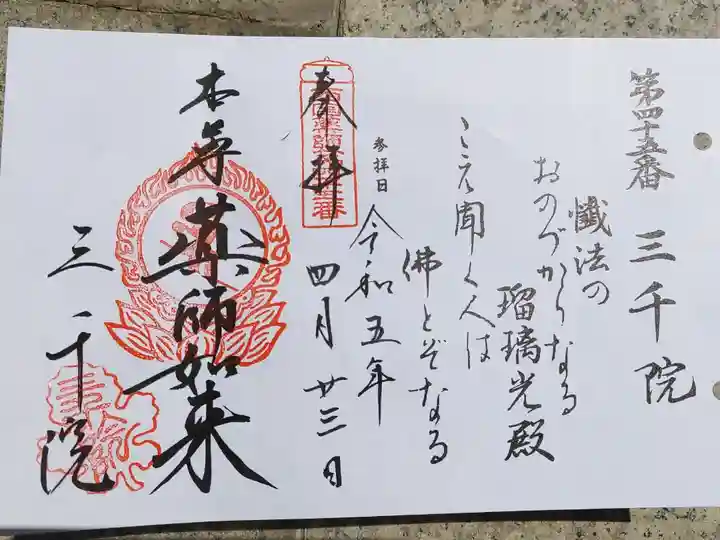 第四十五番 三千院
懺法の
おのづからなる
瑠璃光殿
こえ聞く人は
佛とぞなる
奉拝
西国薬師第四十五番
参拝日
令和五年
四月廿三日
本尊
薬師如来
三千院